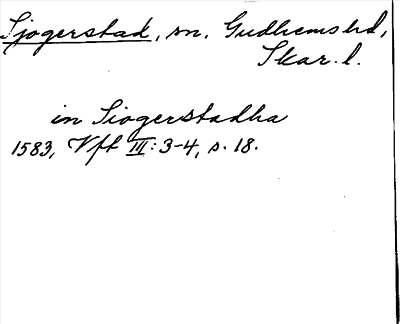 Sjogerstad, sn, Gudhems hd,
Skar. l.
in Siogerstadha
1583, Vft III: 3-4, s. 18.